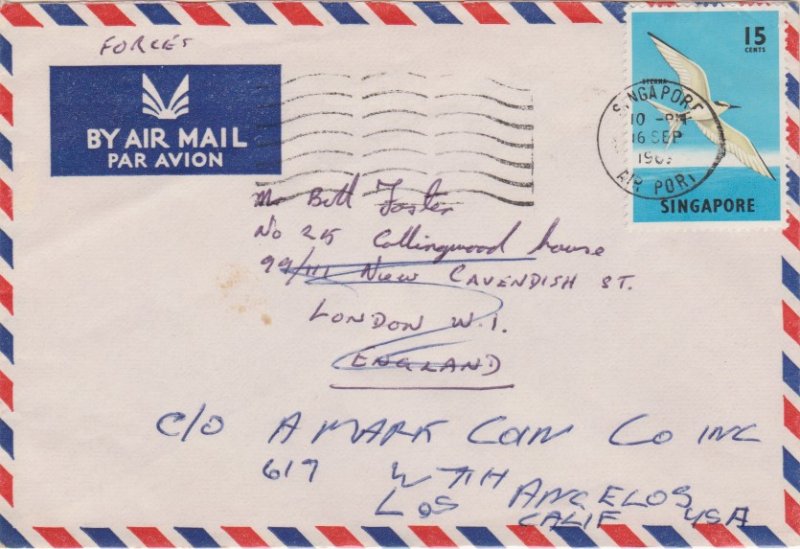 FORCES
BY AIR MAIL
PAR AVION
15
CENTS
STERNA
SINGAPORE
10 - PM
16 SEP
196
AIR PORT
SINGAPORE
Mr Bill Foster
No 25 Collingwood house
99/111 New CAVENDISH ST.
LONDON W.1.
ENGLAND
C/O A MARK COIN CO INC
617 W 7TH
LOS ANGELOS
CALIF USA